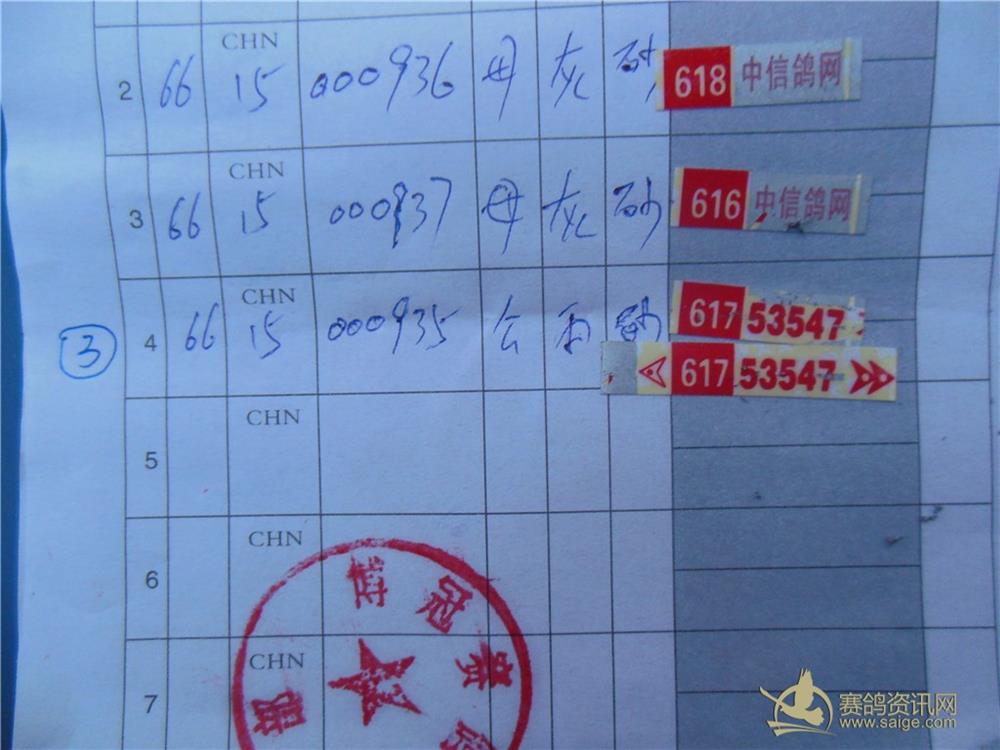 CHN
2 66 15 000936 母 灰 砂 618 中信鸽网
CHN
3 66 15 000937 母 灰 砂 616 中信鸽网
CHN
③ 4 66 15 000935 公 雨 617 53547
617 53547
CHN
5
CHN
6
CHN
7
冠 赛
赛鸽资讯网
www.saige.com